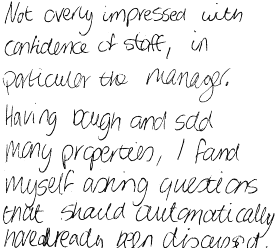 Not overly impressed with
confidence of staff, in
particular the manager.
Having bough and sold
many properties, I found
myself asking questions
that should automatically
have already been discussed